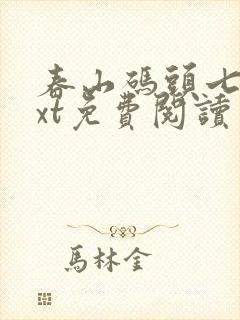 春山碼頭七
xt免費閱讀
馬林金